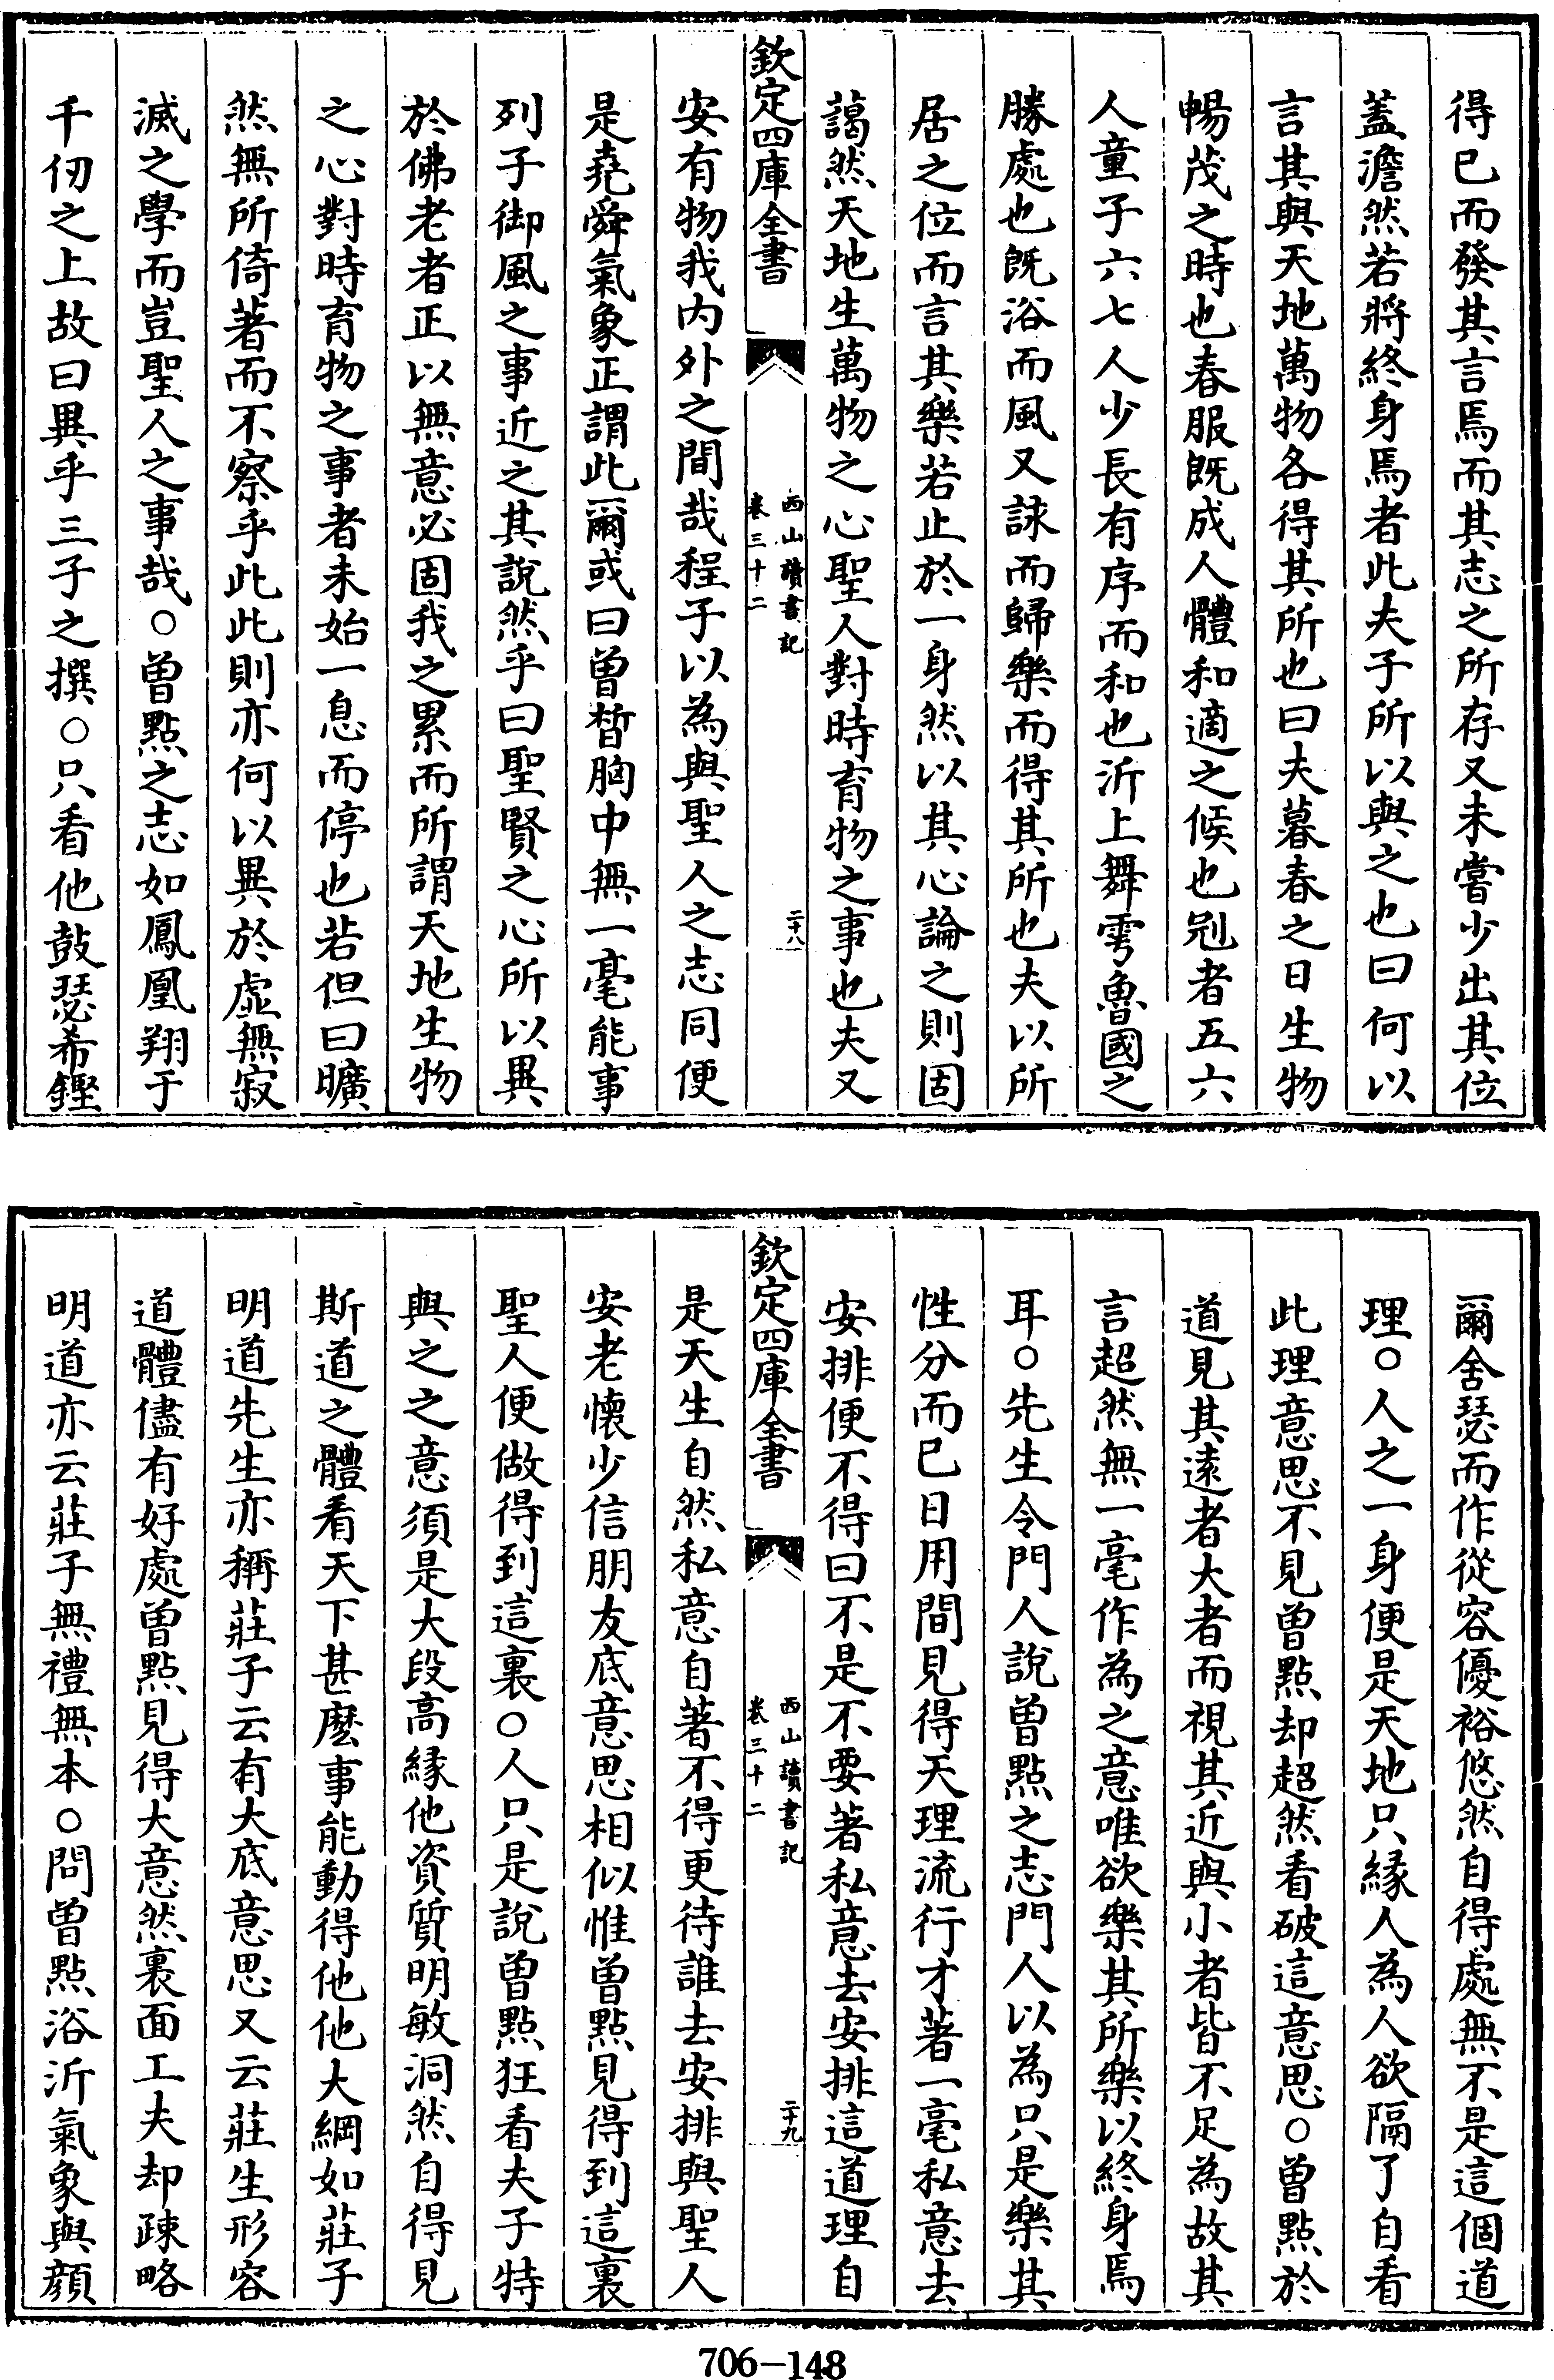 得已而發其言焉而其志之所存又未嘗少出其位
蓋澹然若將終身焉者此夫子所以與之也曰何以
言其與天地萬物各得其所也曰夫暮春之日生物
暢茂之時也春服既成人體和適之候也冠者五六
人童子六七人少長有序而和也沂上舞雩魯國之
勝處也既浴而風又詠而歸樂而得其所也夫以所
居之位而言其樂若止於一身然以其心論之則固
藹然天地生萬物之心聖人對時育物之事也夫又
欽定四庫全書
西山讀書記
卷三十二
二十八
安有物我内外之間哉程子以為與聖人之志同便
是堯舜氣象正謂此爾或曰曾晳胸中無一毫能事
列子御風之事近之其說然乎曰聖賢之心所以異
於佛老者正以無意必固我之累而所謂天地生物
之心對時育物之事者未始一息而停也若但曰曠
然無所倚著而不察乎此此則亦何以異於虛無寂
滅之學而豈聖人之事哉○曾點之志如鳳凰翔于
千仞之上故曰異乎三子之撰○只看他鼓瑟希鏗
爾舍瑟而作從容優裕悠然自得處無不是這個道
理○人之一身便是天地只緣人為人欲隔了自看
此理意思不見曾點却超然看破這意思○曾點於
道見其遠者大者而視其近與小者皆不足為故其
言超然無一毫作為之意唯欲樂其所樂以終身焉
耳○先生令門人說曾點之志門人以為只是樂其
性分而已日用間見得天理流行才著一毫私意去
安排便不得曰不是不要著私意去安排這道理自
欽定四庫全書
西山讀書記
卷三十二
二十九
是天生自然私意自著不得更待誰去安排與聖人
安老懷少信朋友底意思相似惟曾點見得到這裏
聖人便做得到這裏○人只是說曾點狂看夫子特
與之之意須是大段高緣他資質明敏洞然自得見
斯道之體看天下甚麽事能動得他他大綱如莊子
明道先生亦稱莊子云有大底意思又云莊生形容
道體儘有好處曾點見得大意然裏面工夫却疎略
明道亦云莊子無禮無本○問曾點浴沂氣象與顔
706-148